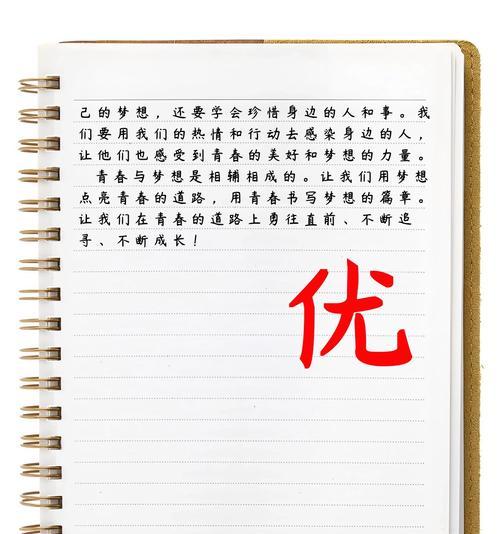 己的梦想，还要学会珍惜身边的人和事。我
们要用我们的热情和行动去感染身边的人，
让他们也感受到青春的美好和梦想的力量。
青春与梦想是相辅相成的。让我们用梦想
点亮青春的道路，用青春书写梦想的篇章。
让我们在青春的道路上勇往直前、不断追
寻、不断成长！
优